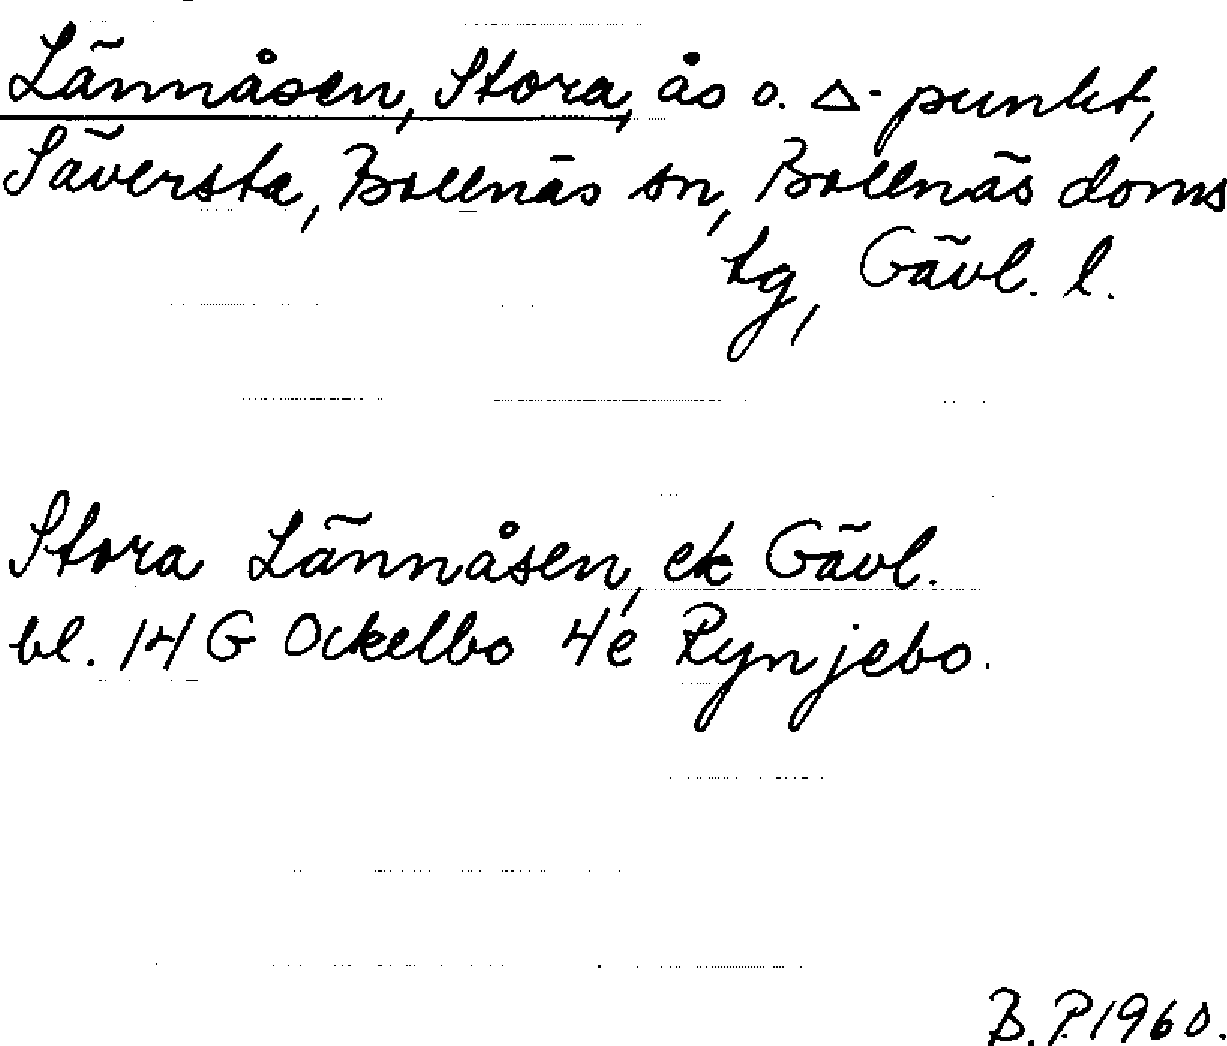 Lännåsen, Stora, ås o. △-punkt,
Säversta, Bollnäs sn, Bollnäs doms
tg, Gävl. l.
Stora Lännåsen, ek Gävl.
bl. 14 G Ockelbo 4e Rynjebo.
B. P. 1960.